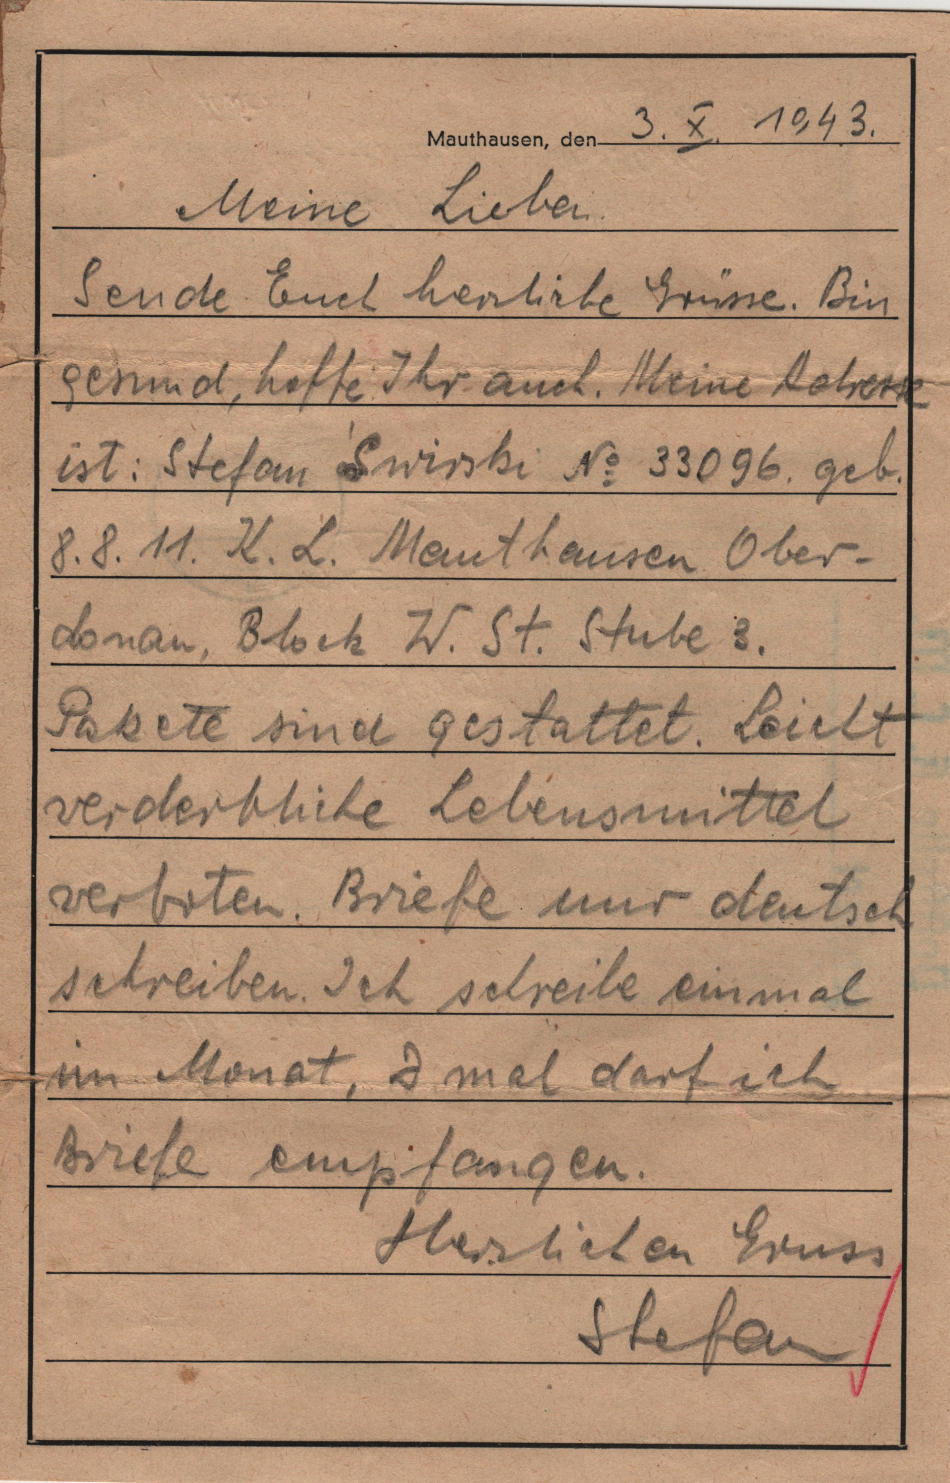 Mauthausen, den 3. X. 1943.
Meine Lieben.
Sende Euch herzliche Grüsse. Bin
gesund, hoffe Ihr auch. Meine Adresse
ist: Stefan Świrski № 33096. geb.
8.8.11. K. L. Mauthausen Ober-
donau, Block W. St. Stube 3.
Pakete sind gestattet. Leicht
verderbliche Lebensmittel
verboten. Briefe nur deutsch
schreiben. Ich schreibe einmal
im Monat, 2 mal darf ich
Briefe empfangen.
Herzlichen Gruss
Stefan